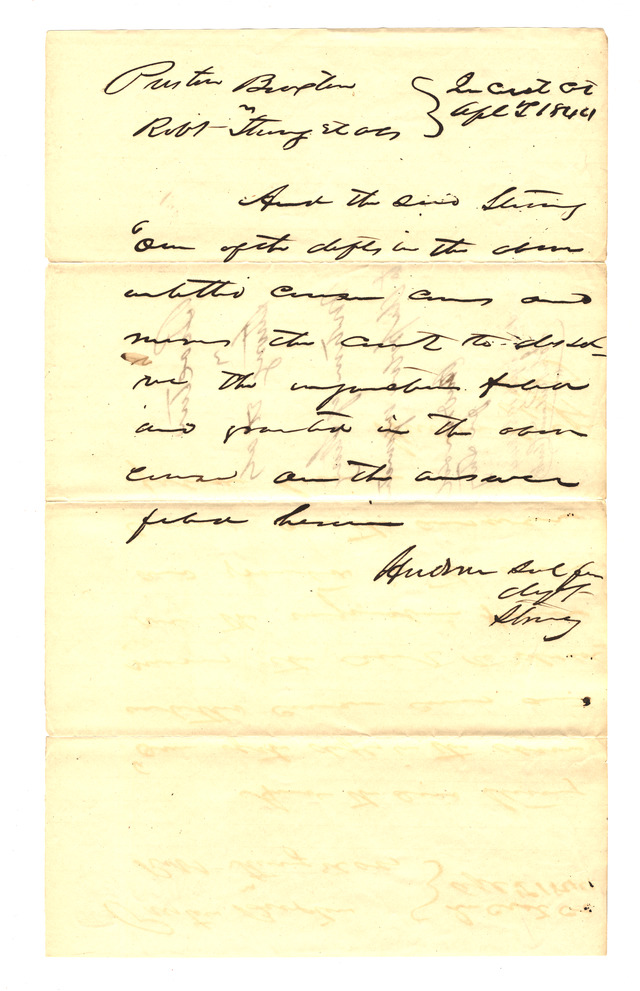 Preston Braxton
vs
Robt Strong et als
In Circt Ct
Apl T 1844
And the said Strong
One of the defts in the above
entitled cause comes and
moves the Court to dissol-
ve the injunction filed
and granted in the above
cause on the answer
filed herein
Hudson Sol for
deft
Strong